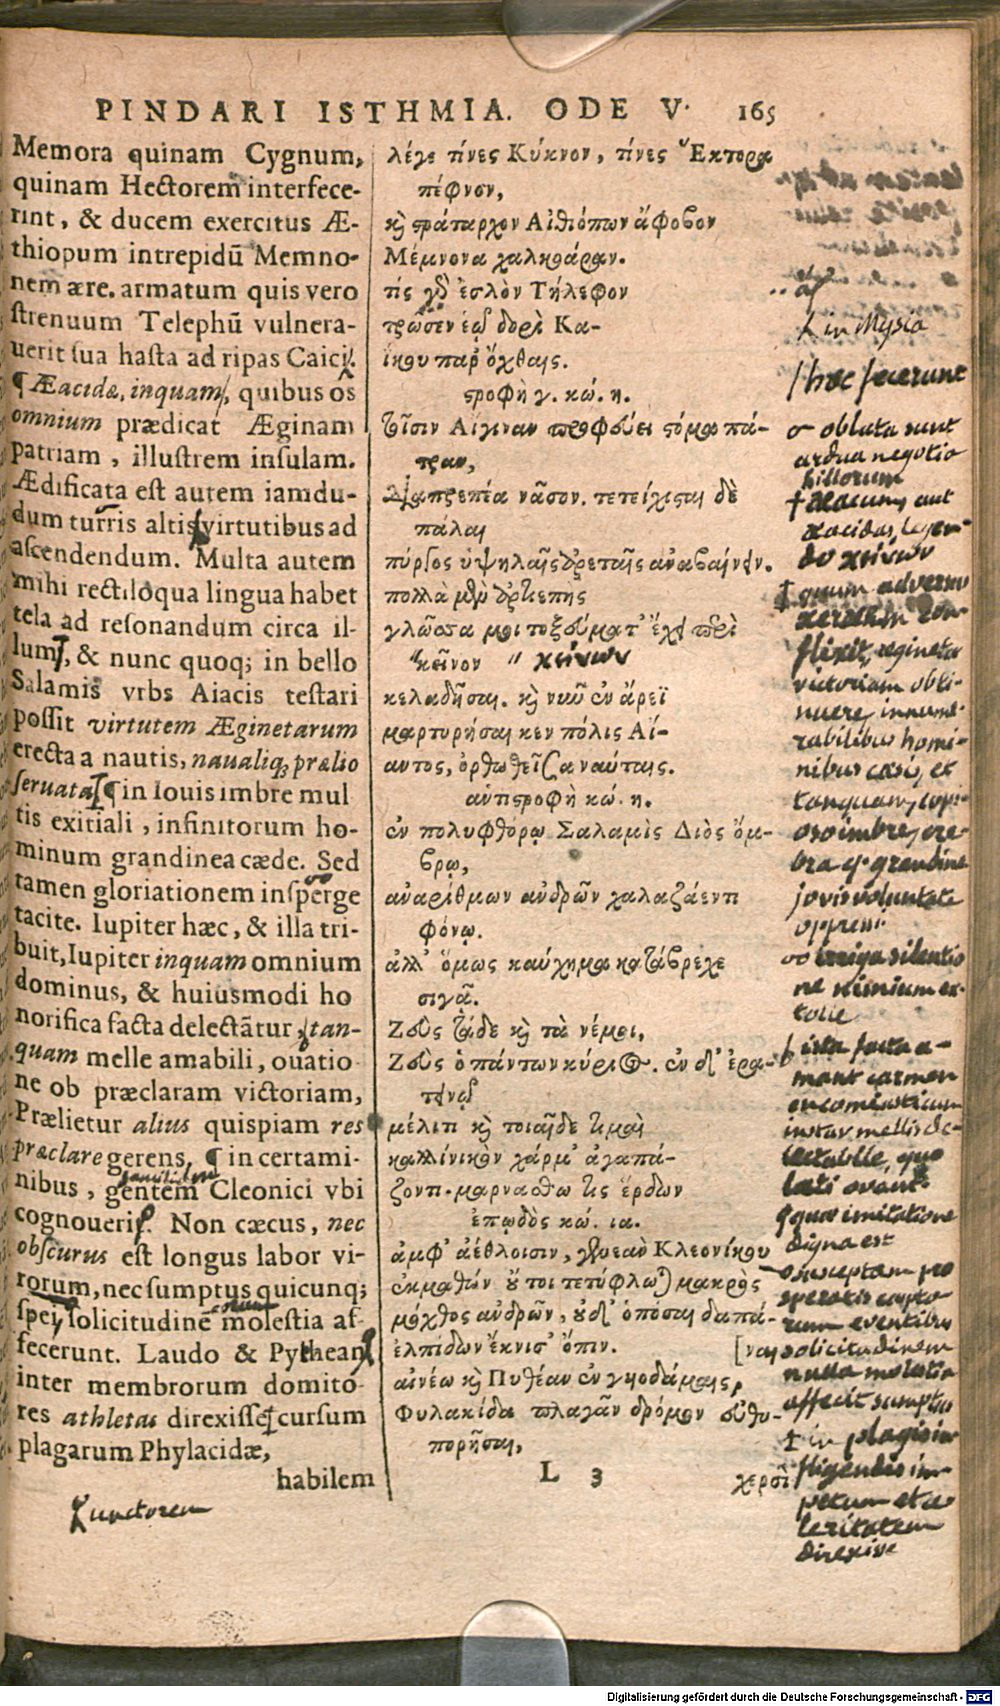 PINDARI ISTHMIA. ODE V. 165
Memora quinam Cygnum,
quinam Hectorem interfece-
rint, & ducem exercitus Æ-
thiopum intrepidũ Memno-
nem ære. armatum quis vero
strenuum Telephũ vulnera-
uerit sua hasta ad ripas Caici.
¶ Æacidæ, inquam, quibus os
omnium prædicat Æginam
patriam, illustrem insulam.
Ædificata est autem iamdu-
dum turris altis virtutibus ad
ascendendum. Multa autem
mihi rectiloqua lingua habet
tela ad resonandum circa il-
lum, & nunc quoq; in bello
Salamis vrbs Aiacis testari
possit virtutem Æginetarum
erecta a nautis, navaliq; prælio
seruata ¶ in Iouis imbre mul
tis exitiali, infinitorum ho-
minum grandinea cæde. Sed
tamen gloriationem insperge
tacite. Iupiter hæc, & illa tri-
buit, Iupiter inquam omnium
dominus, & huiusmodi ho
norifica facta delectãtur, tan-
quam melle amabili, ouatio
ne ob præclaram victoriam,
Prælietur alius quispiam res
præclare gerens, ¶ in certami-
nibus, gentem Cleonici vbi
cognouerit. Non cæcus, nec
obscurus est longus labor vi-
rorum, nec sumptus quicunq;
spei, solicitudinẽ molestia af-
fecerunt. Laudo & Pythean
inter membrorum domito
res athletas direxisse cursum
plagarum Phylacidæ,
habilem
λέγε τίνες Κύκνον, τίνες Ἕκτορα
πέφνον,
καὶ στράταρχον Αἰθιόπων ἄφοβον
Μέμνονα χαλκοάραν.
τίς γὰρ ἐσλὸν Τήλεφον
τρῶσεν ἑῷ δορὶ Κα-
ίκου παρ' ὄχθαις.
στροφὴ γ. κώ. η.
τοῖσιν Αἴγιναν προφέρει στόμα πά-
τραν,
Διαπρεπέα νᾶσον. τετείχισται δὲ
πάλαι
πύργος ὑψηλαῖς ἀρεταῖς ἀναβαίνειν.
πολλὰ μὲν ἀρτιεπὴς
γλῶσσα μοι τοξεύματ' ἔχει περὶ
"κεῖνον " κείνων
κελαδῆσαι. καὶ νῦν ἐν ἄρεϊ
μαρτυρήσαι κεν πόλις Αἴ-
αντος, ὀρθωθεῖσα ναύταις.
ἀντιστροφὴ κώ. η.
ἐν πολυφθόρῳ Σαλαμὶς Διὸς ὄμ-
βρῳ,
ἀναρίθμων ἀνδρῶν χαλαζάεντι
φόνῳ.
ἀλλ' ὅμως καύχημα κατάβρεχε
σιγᾷ.
Ζεὺς τάδε καὶ τὰ νέμει,
Ζεὺς ὁ πάντων κύριος. ἐν δ' ἐρα-
τεινῷ
μέλιτι καὶ τοιαῖδε τιμαὶ
καλλίνικον χάρμ' ἀγαπά-
ζοντι. μαρνάσθω τις ἕρδων
ἐπῳδὸς κώ. ια.
ἀμφ' ἀέθλοισιν, γενεὰν Κλεονίκου
ἐκμαθών οὔτοι τετύφλωται μακρὸς
μόχθος ἀνδρῶν, οὐδ' ὁπόσαι δαπά-
ἐλπίδων ἔκνισ' ὄπιν. [ναι
αἰνέω καὶ Πυθέαν ἐν γυιοδάμαις,
Φυλακίδα πλαγᾶν δρόμον εὐθυ-
πορῆσαι,
L 3 χερσὶ
in Mysia
hæc fecerunt
oblata sunt
ardua negotia
illorum
† æacum, aut
æacidas, legen-
do κείνων
quum adversus
xerxem con-
flixit, æginetæ
victoriam obti-
nuere, innume-
rabilibus homi-
nibus cæsis, et
tanquam copi-
oso imbre, cre-
bra q; grandine
jovis voluntate
oppress.
irriga silentio
ne nimium ex-
tolle
ista facta a-
mant carmen
encomiasticum
instar mellis de-
lectabile, quo
læti ovant
quæ imitatione
digna est
susceptam pro
speratis
rum eventibus
solicitudinem
nulla molestia
affecit sumptus
in plagis in-
fligendis im-
petum et ce-
leritatem
direxisse